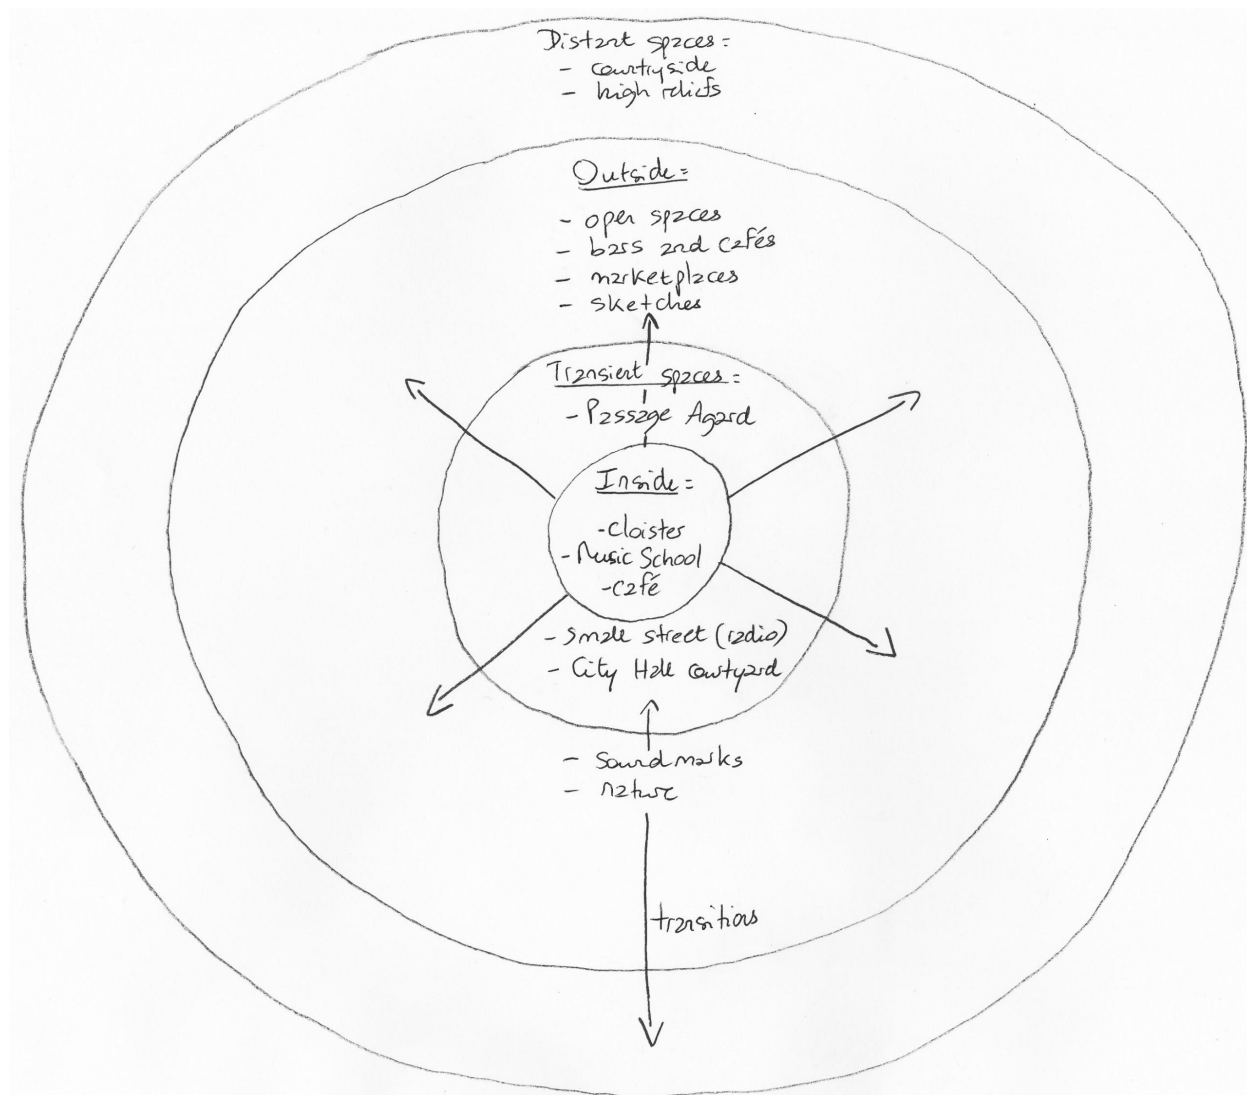 Distant spaces =
- countryside
- high reliefs
Outside =
- open spaces
- bars and cafés
- marketplaces
- sketches
Transient spaces =
- Passage Agard
Inside =
- Cloister
- Music School
- café
- small street (radio)
- City Hall courtyard
- soundmarks
- nature
transitions